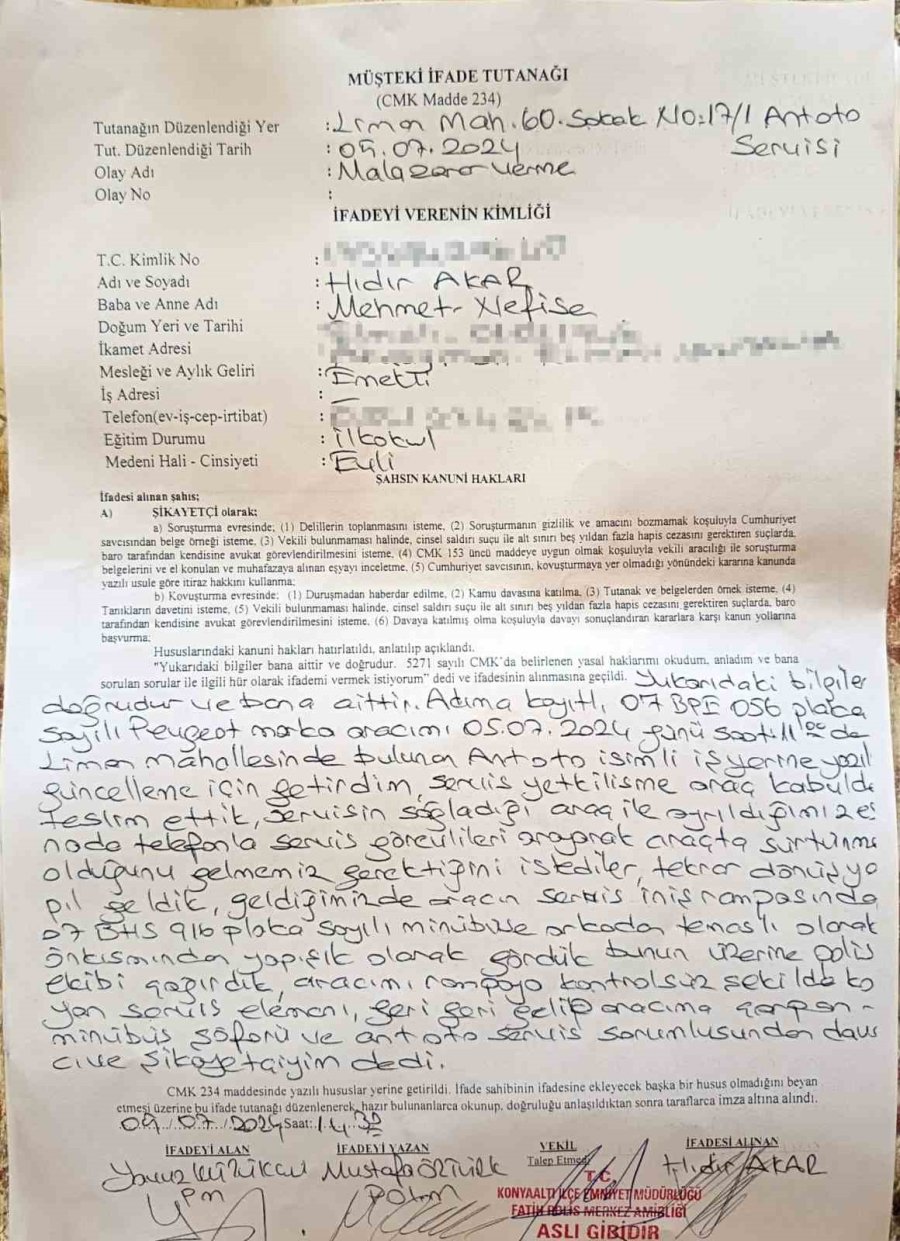 MÜŞTEKİ İFADE TUTANAĞI
(CMK Madde 234)
Tutanağın Düzenlendiği Yer : Liman Mah. 60. Sokak No:17/1 Antoto
Servisi
Tut. Düzenlendiği Tarih : 05.07.2024
Olay Adı : Mala zarar verme
Olay No :
İFADEYİ VERENİN KİMLİĞİ
T.C. Kimlik No :
Adı ve Soyadı : Hıdır AKAR
Baba ve Anne Adı : Mehmet - Nefise
Doğum Yeri ve Tarihi
İkamet Adresi
Mesleği ve Aylık Geliri : Emekli
İş Adresi : —
Telefon(ev-iş-cep-irtibat) :
Eğitim Durumu : İlkokul
Medeni Hali - Cinsiyeti : Evli
ŞAHSIN KANUNİ HAKLARI
İfadesi alınan şahıs;
A) ŞİKAYETÇİ olarak;
a) Soruşturma evresinde; (1) Delillerin toplanmasını isteme, (2) Soruşturmanın gizlilik ve amacını bozmamak koşuluyla Cumhuriyet
savcısından belge örneği isteme, (3) Vekili bulunmaması halinde, cinsel saldırı suçu ile alt sınırı beş yıldan fazla hapis cezasını gerektiren suçlarda,
baro tarafından kendisine avukat görevlendirilmesini isteme, (4) CMK 153 üncü maddeye uygun olmak koşuluyla vekili aracılığı ile soruşturma
belgelerini ve el konulan ve muhafazaya alınan eşyayı inceletme, (5) Cumhuriyet savcısının, kovuşturmaya yer olmadığı yönündeki kararına kanunda
yazılı usule göre itiraz hakkını kullanma;
b) Kovuşturma evresinde; (1) Duruşmadan haberdar edilme, (2) Kamu davasına katılma, (3) Tutanak ve belgelerden örnek isteme, (4)
Tanıkların davetini isteme, (5) Vekili bulunmaması halinde, cinsel saldırı suçu ile alt sınırı beş yıldan fazla hapis cezasını gerektiren suçlarda, baro
tarafından kendisine avukat görevlendirilmesini isteme, (6) Davaya katılmış olma koşuluyla davayı sonuçlandıran kararlara karşı kanun yollarına
başvurma;
Hususlarındaki kanuni hakları hatırlatıldı, anlatılıp açıklandı.
"Yukarıdaki bilgiler bana aittir ve doğrudur. 5271 sayılı CMK'da belirlenen yasal haklarımı okudum, anladım ve bana
sorulan sorular ile ilgili hür olarak ifademi vermek istiyorum" dedi ve ifadesinin alınmasına geçildi. Yukarıdaki bilgiler
doğrudur ve bana aittir. Adıma kayıtlı, 07 BPE 056 plaka
sayılı Peugeot marka aracımı 05.07.2024 günü saat:11 00 de
Liman mahallesinde bulunan Antoto isimli işyerine yazıl
güncelleme için getirdim, servis yetkilisine araç kabulde
teslim ettik, servisin sağladığı araç ile ayrıldığımız es
nada telefonla servis görevlileri arayarak araçta sürtünme
olduğunu gelmemiz gerektiğini istediler, tekrar dönüş ya
pıp geldik, geldiğimizde aracın servis iniş rampasında
07 BHS 916 plaka sayılı minübüse arkadan temaslı olarak
önkısmından yapışık olarak gördük bunun üzerine polis
ekibi çağırdık, aracımı rampaya kontrolsüz şekilde ko
yan servis elemanı, geri geri gelip aracıma çarpan
minübüs şoförü ve antoto servis sorumlusundan dava
cı ve şikayetçiyim dedi.
CMK 234 maddesinde yazılı hususlar yerine getirildi. İfade sahibinin ifadesine ekleyecek başka bir husus olmadığını beyan
etmesi üzerine bu ifade tutanağı düzenlenerek, hazır bulunanlarca okunup, doğruluğu anlaşıldıktan sonra taraflarca imza altına alındı.
05../07../2024 Saat:14.30
İFADEYİ ALAN İFADEYİ YAZAN VEKİL İFADESİ ALINAN
Talep Etmedi
Yavuz Mustafa Hıdır AKAR
T.C.
KONYAALTI İLÇE EMNİYET MÜDÜRLÜĞÜ
FATİH POLİS MERKEZ AMİRLİĞİ
ASLI GİBİDİR